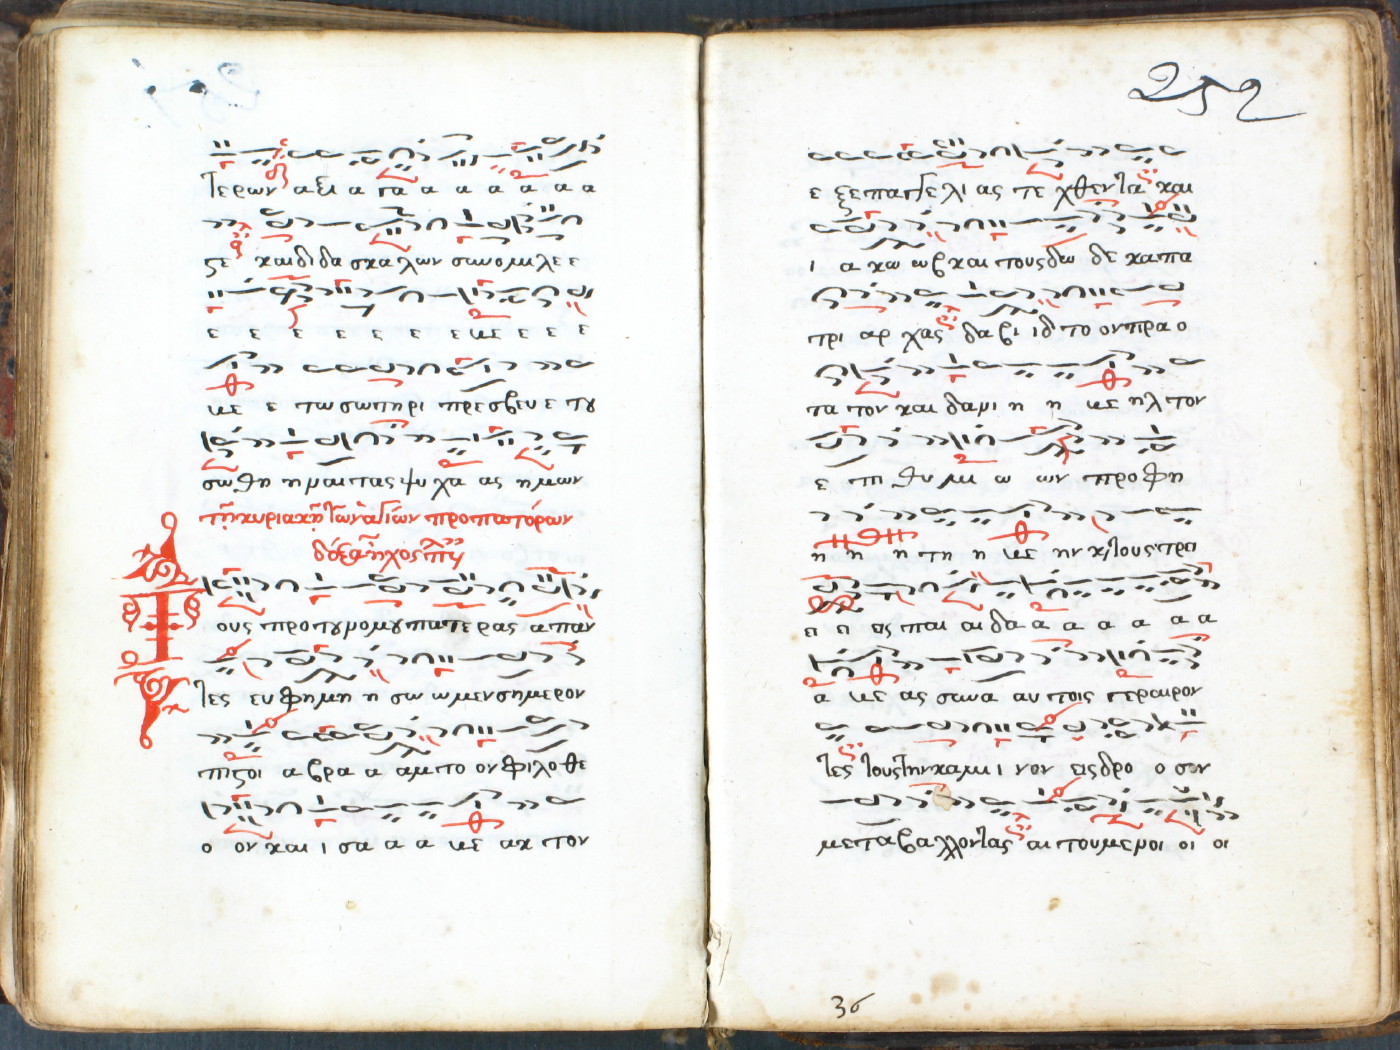 ἱερων αξι α γα α α α α α α
ςε και διδα σκα λων συνομιλε ε
ε ε ε ε ε ε ε με ε ε ε
με ε τω σωτηρι πρεσβευ ε τȣ
σω θη η ναι τας ψυ χα ας ημων
τῇ κυριακῇ τῶν ἁγίων προπατόρων
δόξα ἦχος πλ
Τους προ τȣ νομȣ πατε ρας απαν
τες ευ φημη η σω ω μεν σημερον
πιςοι αβρα α αμ το ον φιλο θε
ο ον και ι σα α α με ακ τον
252
ε ξ επαγγελι ας τε χθεντα και
ι α κω ωβ και τους δω δε κα πα
τρι αρ χας δα βι ιδ το ον πρα ο
τα τον και δανι η η με ηλ τον
ε πι θυ μι ω ων προ φη
η η η τη η με ην κ τους τρει
ει ει εις παι αι δα α α α α α α
α με ας συν α αυ τοις γεραιρον
τες τους την καμι ι νον εις δρο ο σον
μεταβαλλοντας αι τουμενοι οι οι
36